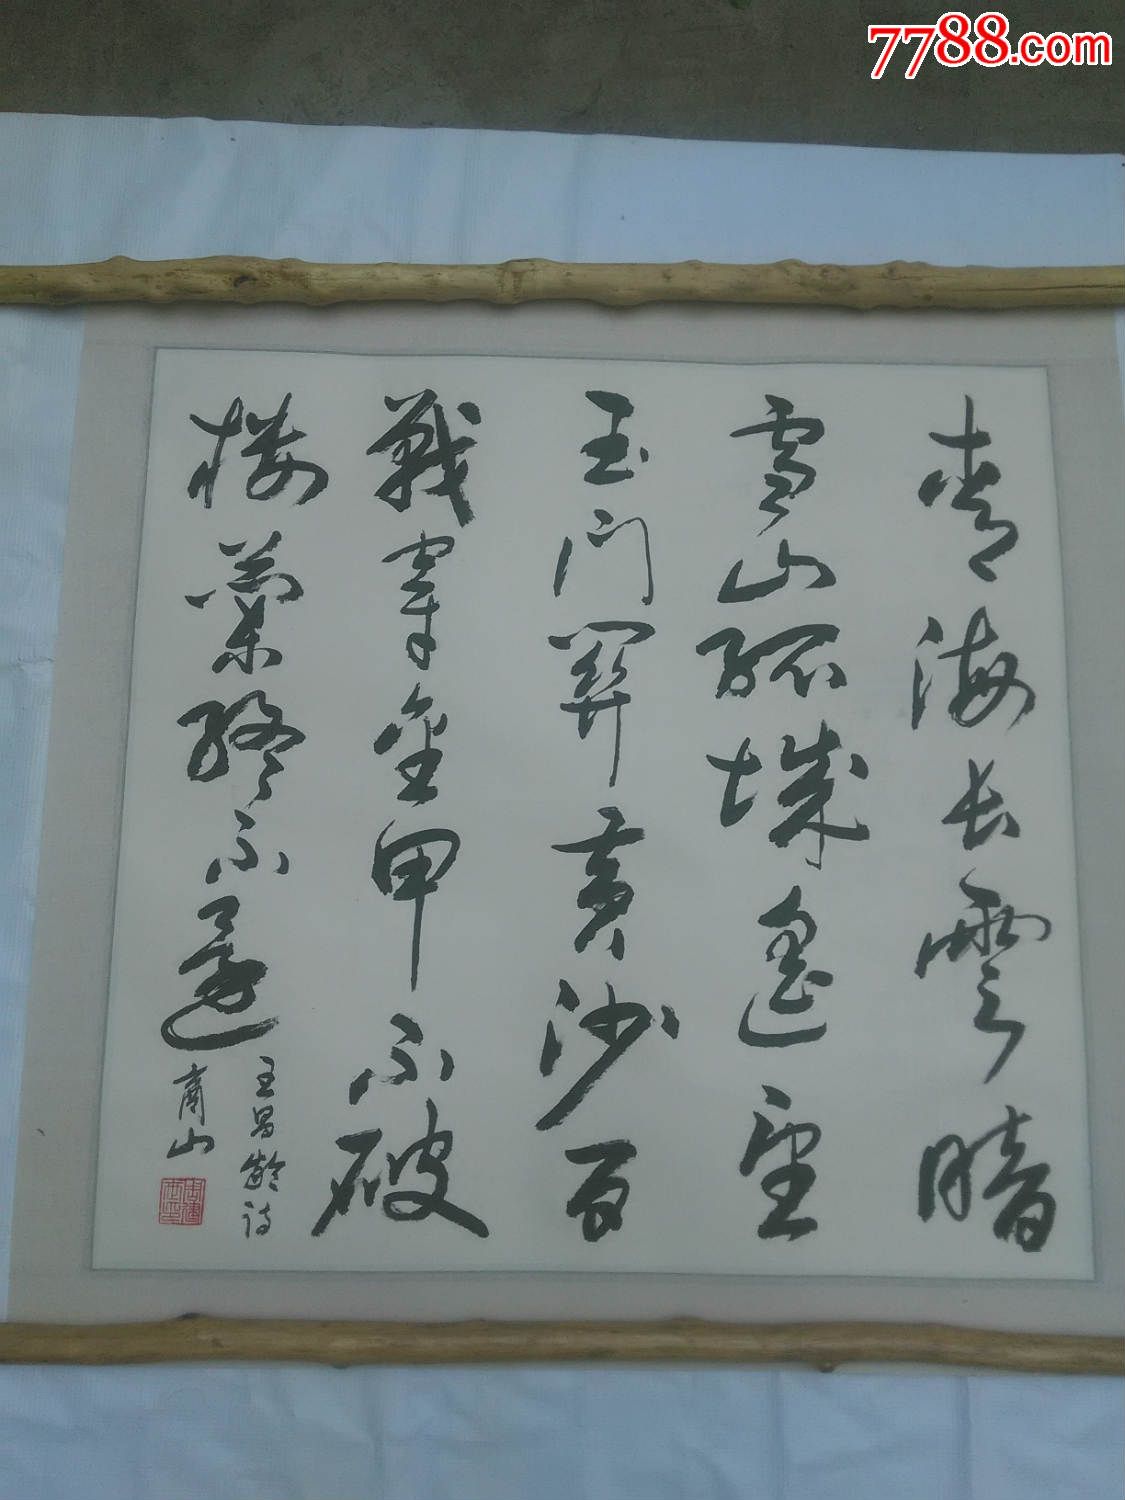 7788.com
青海长雲暗
雪山孤城遥望
玉门関黄沙百
戰穿金甲不破
楼蘭終不還
王昌龄诗
商山